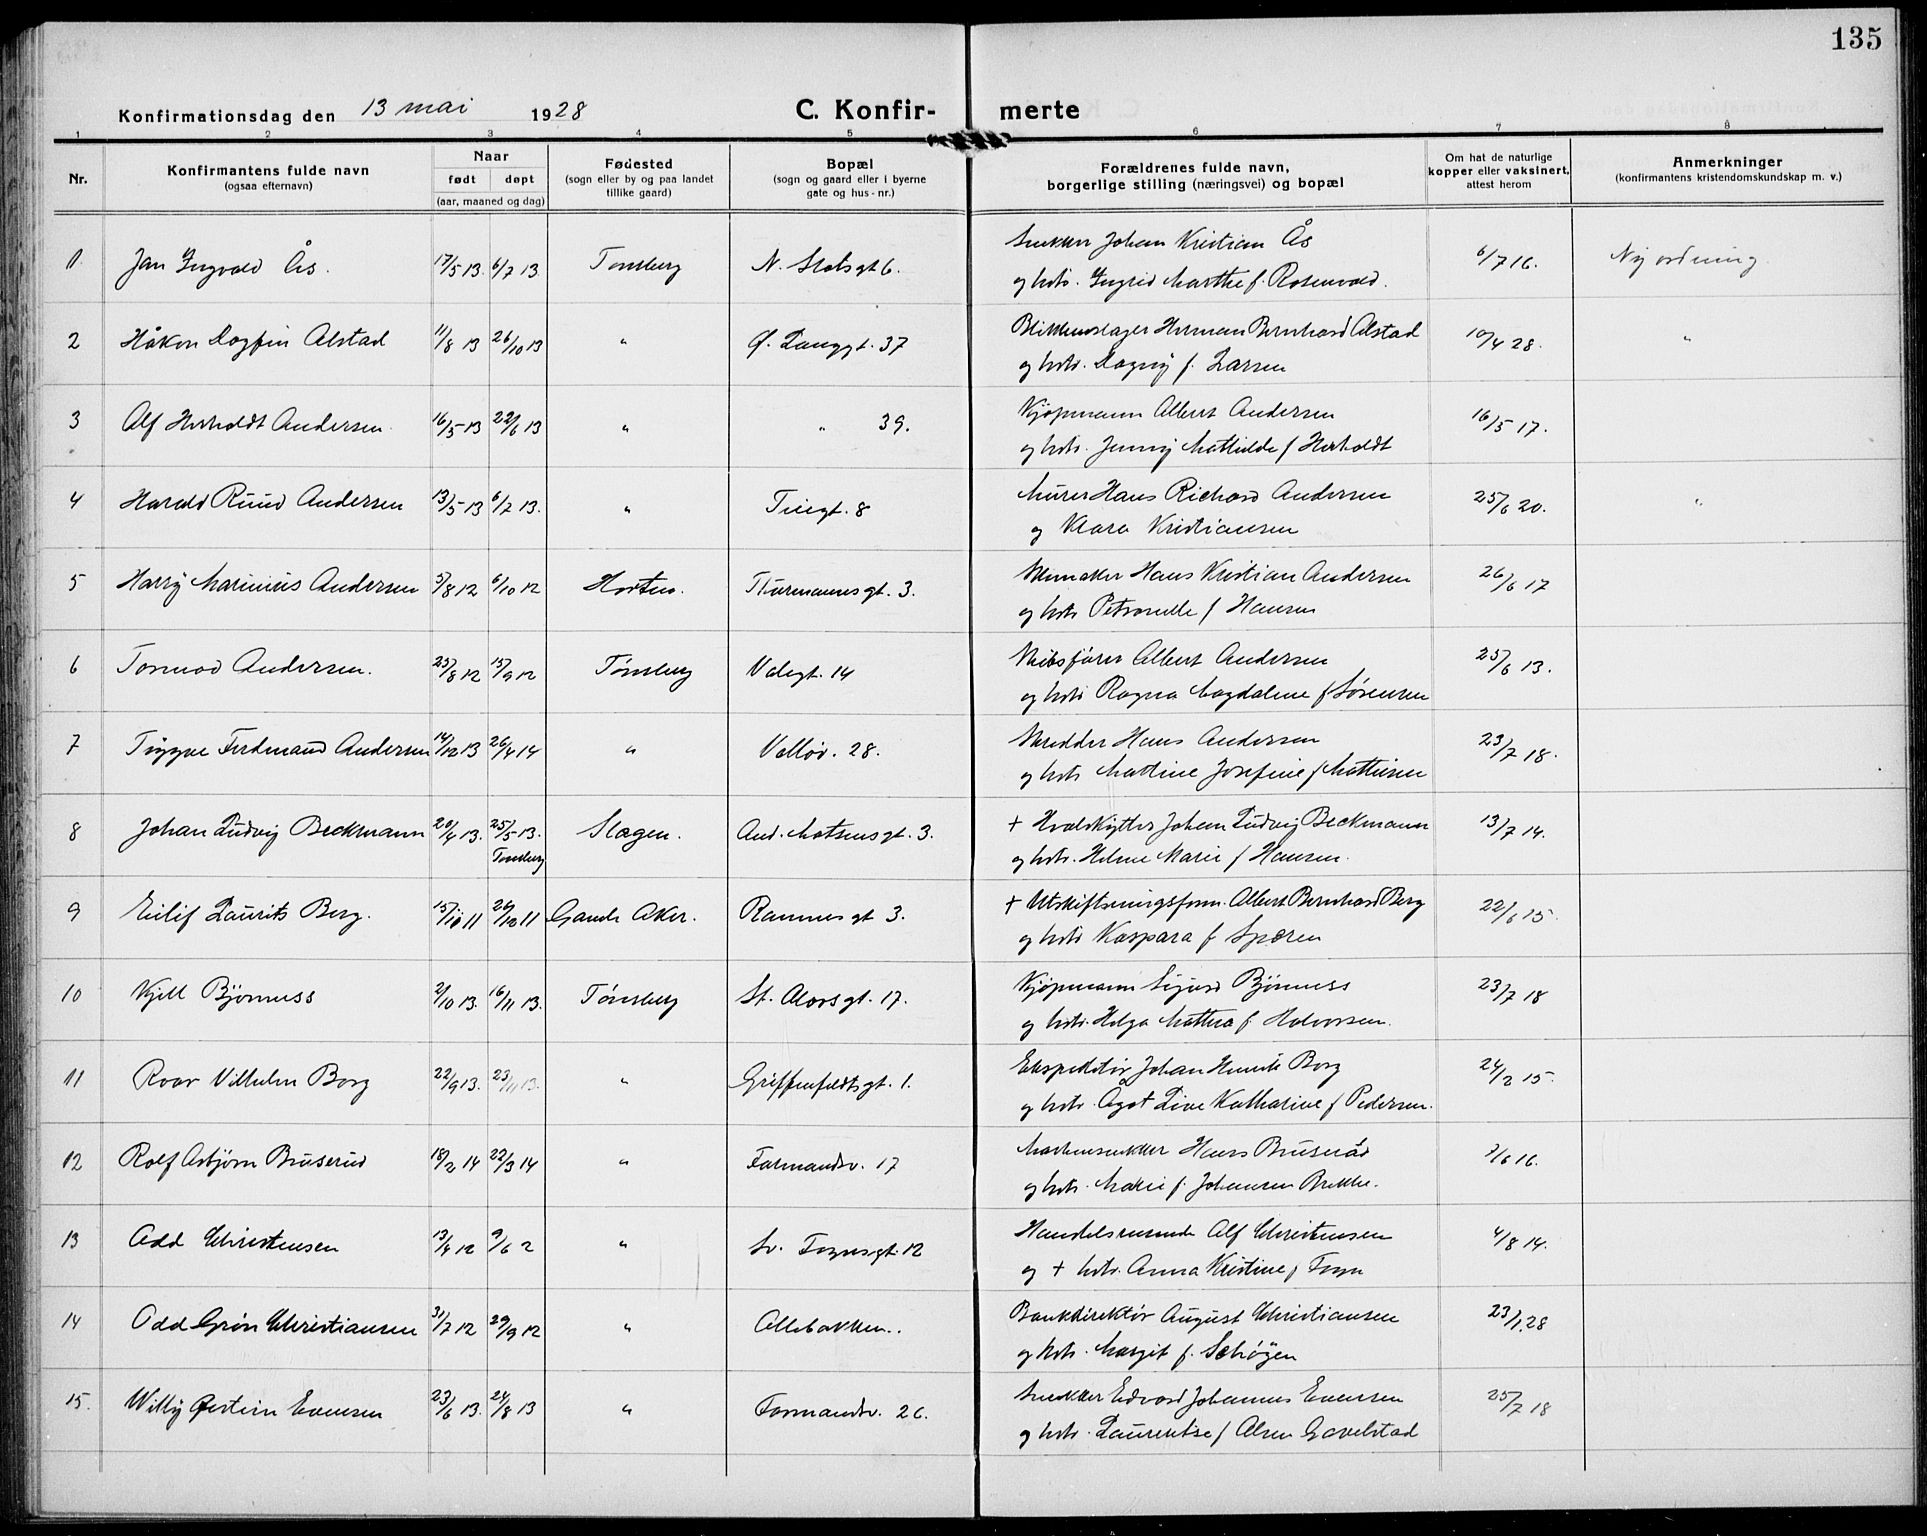 135
Konfirmationsdag den 13 mai 1928 C. Konfirmerte
1 2 3 4 5 6 7 8
Nr. Konfirmantens fulde navn (ogsaa efternavn) Naar født døpt (aar, maaned og dag) Fødested (sogn eller by og paa landet tillike gaard) Bopæl (sogn og gaard eller i byerne gate og hus-nr.) Forældrenes fulde navn, borgerlige stilling (næringsvei) og bopæl Om hat de naturlige kopper eller vaksinert, attest herom Anmerkninger (konfirmantens kristendomskundskap m. v.)
1. Jan Ingvald Ås. 17/5 13. 6/7 13. Tønsberg N. Slotsgt 6. Snekker Johan Kristian Ås 6/7 16. Ny ordning
og hstr. Ingrid Marthe f. Rosenvold.
2 Håkon Dagfin Alstad 11/8 13 26/10 13 " Ø. Langgt. 37 Blikkenslager Herman Bernhard Alstad 10/4 28. "
og hstr. Dagny f. Larsen
3 Alf Herholdt Andersen 16/5 13 22/6 13 " " 39. Kjøpmann Albert Andersen 16/5 17.
og hstr. Jenny Mathilde f Herholdt
4 Harald Ruud Andersen 13/5 13 6/7 13. " Tiegt. 8 Murer Hans Richard Andersen 25/6 20. "
og Klara Kristiansen
5 Harry Marinius Andersen 5/8 12 6/10 12 Horten. Thurmannsgt. 3. Skomaker Hans Kristian Andersen 26/6 17
og hstr Petronelle f Hansen
6 Tormod Andersen. 25/8 12 15/9 12 Tønsberg Valegt. 14 Skibsfører Albert Andersen 25/6 13.
og hstr Ragna Magdalene f Sørensen
7 Tryggve Ferdinand Andersen 14/12 13 26/4 14 " Valløv. 28. Skredder Hans Andersen 23/7 18.
og hstr Mathine Josefine f Mathisen
8 Johan Ludvig Beckmann 20/4 13. 25/5 13. Tønsberg Slagen. And. Madsensgt. 3. + Hvalskytter Johan Ludvig Beckmann 13/7 14.
og hstr. Helene Marie f Hansen.
9 Eilif Laurits Berg. 15/10 11 29/12 11 Gamle Aker. Ramnesgt 3. + Utskiftningsform. Albert Bernhard Berg 22/6 15.
og hstr Kaspara f Spæren
10 Kjell Bjørness 2/10 13. 16/11 13. Tønsberg St. Olavsgt. 17. Kjøpmann Sigurd Bjørness 23/7 18
og hstr. Helga Mathea f. Halvorsen.
11 Roar Vilhelm Borg 22/9 13. 23/11 13. " Griffenfeldtsgt. 1. Ekspeditør Johan Henrik Borg 24/2 15.
og hstr. Ågot Live Katharine f Pedersen.
12 Rolf Asbjørn Bruserud 18/2 14 22/3 14 " Farmandsv. 17 Maskinsnekker Hans Bruserud 7/6 16.
og hstr. Marie f. Johansen Brekke.
13 Odd Christensen 13/4 12 9/6 2 " Sv. Foynsgt. 12 Handelsreisende Alf Christensen 4/8 14.
og + hstr. Anna Kristine f Foyn
14 Odd Grøn Christiansen 31/7 12 29/9 12 " Ollebakken. Bankdirektør August Christiansen 23/1 28
og hstr. Margit f. Schøyen
15. Willy Øistein Evensen 23/6 13. 24/8 13 " Farmandsv. 26. Snekker Edvard Johannes Evensen 25/7 18
og hstr. Laurentse f Olsen Gavelstad